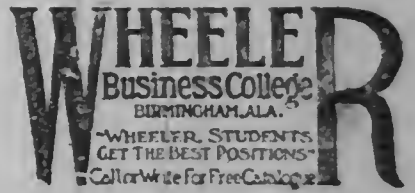 WHEELER
Business College
BIRMINGHAM, ALA.
"WHEELER STUDENTS
GET THE BEST POSITIONS"
Call or Write For Free Catalogue